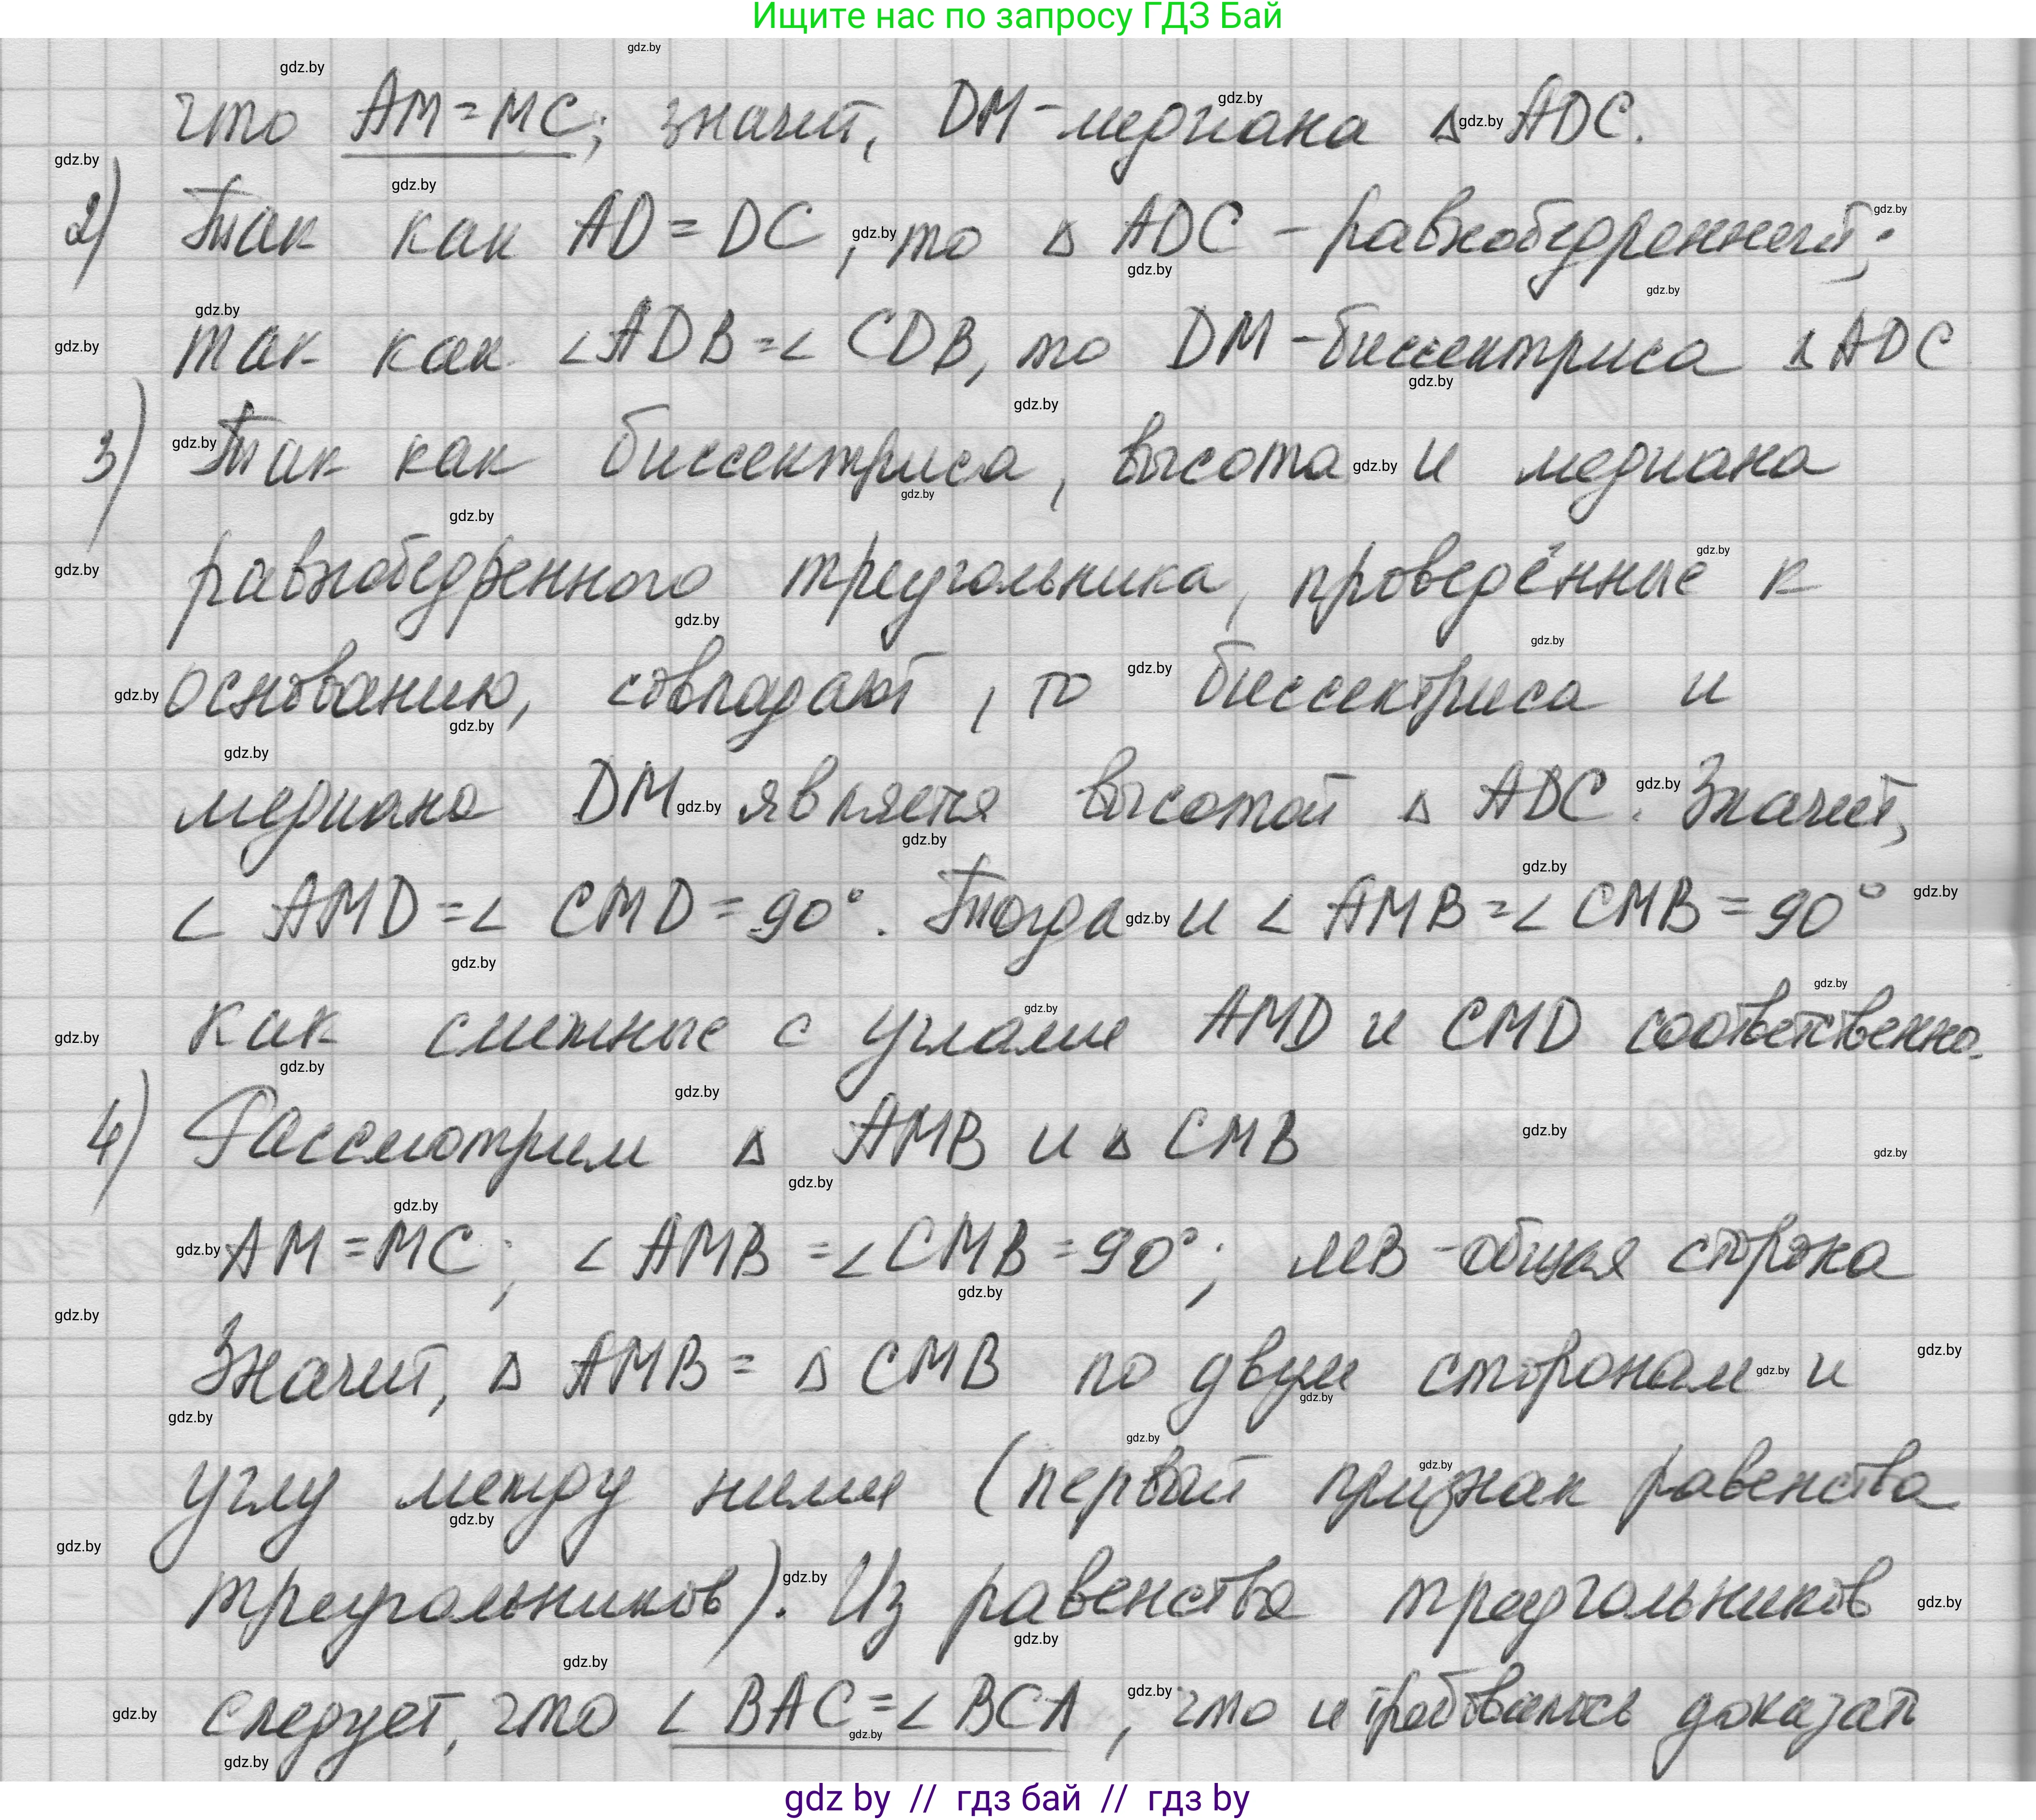 Ищите нас по запросу ГДЗ Бай
что AM=MC; значит, DM-медиана △ ADC.
2) Так как AD=DC, то △ ADC - равнобедренный;
так как ∠ADB=∠CDB, то DM-биссектриса △ADC
3) Так как биссектриса, высота и медиана
равнобедренного треугольника, проведённые к
основанию, совпадают, то биссектриса и
медиана DM является высотой △ ADC. Значит,
∠ AMD=∠ CMD=90°. Тогда и ∠ AMB=∠ CMB=90°
как смежные с углами AMD и CMD соответственно.
4) Рассмотрим △ AMB и △ CMB
AM=MC; ∠ AMB=∠CMB=90°; MB-общая сторона
Значит, △ AMB= △ CMB по двум сторонам и
углу между ними (первый признак равенства
треугольников). Из равенства треугольников
следует, что ∠ BAC=∠ BCA, что и требовалось доказать
gdz by // гдз бай // гдз by